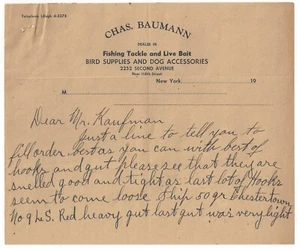 Telephone LEhigh 4-2275
CHAS. BAUMANN
DEALER IN
Fishing Tackle and Live Bait
BIRD SUPPLIES AND DOG ACCESSORIES
2253 SECOND AVENUE
Near 116th Street
New York, 19
M
Dear Mr. Kaufman
Just a line to tell you to
fill order best as you can with best of
hooks and gut please see that they are
snelled good and tight as last lot of Hooks
seem to come loose Ship 50 gr. Chestertown
No 9 L.S. Red heavy gut last gut was very light